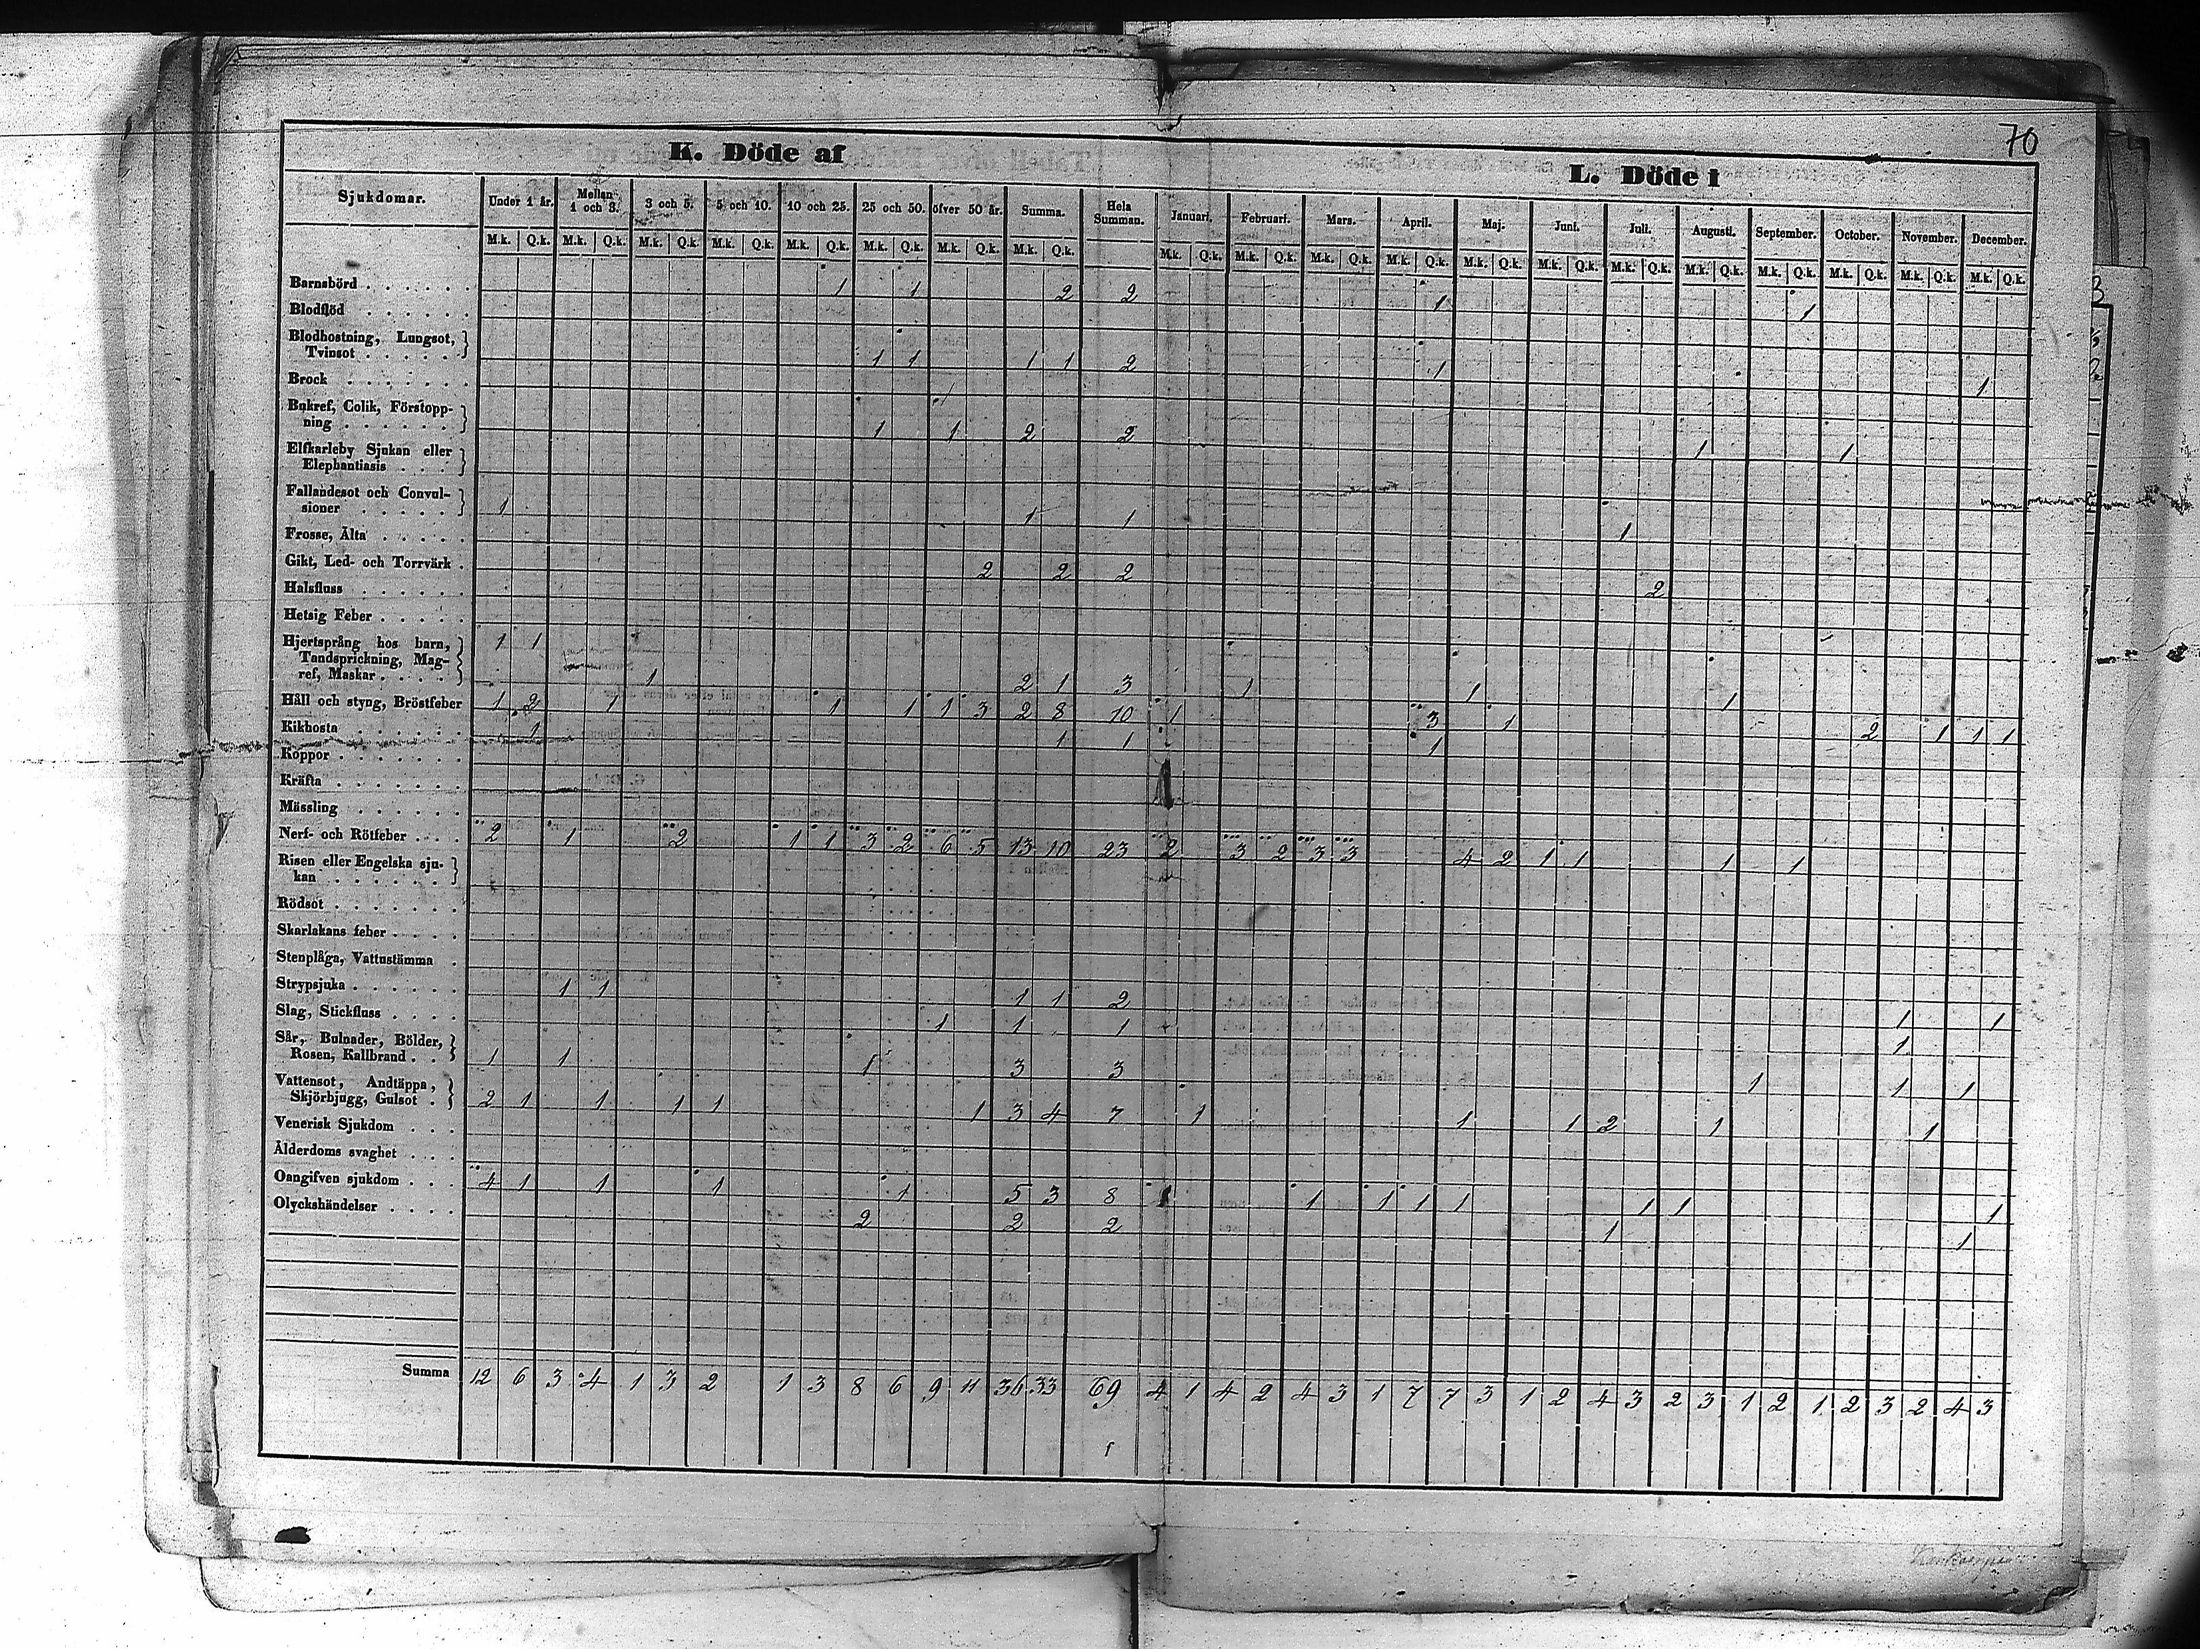 70
K. Döde af
L. Döde i
Sjukdomar. Under 1 år. Mellan 1 och 3. 3 och 5. 5 och 10. 10 och 25. 25 och 50. öfver 50 år. Summa. Hela Summan. Januari. Februari. Mars. April. Maj. Juni. Juli. Augusti. September. October. November. December.
M.k. Q.k. M.k. Q.k. M.k. Q.k. M.k. Q.k. M.k. Q.k. M.k. Q.k. M.k. Q.k. M.k. Q.k. M.k. Q.k. M.k. Q.k. M.k. Q.k. M.k. Q.k. M.k. Q.k. M.k. Q.k. M.k. Q.k. M.k. Q.k. M.k. Q.k. M.k. Q.k. M.k. Q.k. M.k. Q.k.
Barnsbörd . . . . . . 1 1 2 2 1 1
Blodflöd . . . . . .
Blodhostning, Lungsot,
Tvinsot . . . . . 1 1 1 1 2 1 1
Brock . . . . . . .
Bukref, Colik, Förstopp-
ning . . . . . . 1 1 2 2 1 1
Elfkarleby Sjukan eller
Elephantiasis . . .
Fallandesot och Convul-
sioner . . . . . 1 1 1 1
Frosse, Älta . . . . .
Gikt, Led- och Torrvärk . 2 2 2 2
Halsfluss . . . . . .
Hetsig Feber . . . . .
Hjertsprång hos barn, 1 1
Tandsprickning, Mag-
ref, Maskar . . . . 1 2 1 3 1 1 1
Håll och styng, Bröstfeber 1 2 1 1 1 1 3 2 8 10 1 3 1 2 1 1 1
Kikhosta . . . . . . 1 1 1 1
Koppor . . . . . . .
Kräfta . . . . . . .
Mässling . . . . . .
Nerf- och Rötfeber . . . 2 1 2 1 1 3 2 6 5 13 10 23 2 3 2 3 3 4 2 1 1 1 1
Risen eller Engelska sju-
kan . . . . . .
Rödsot . . . . . . .
Skarlakans feber . . . .
Stenplåga, Vattustämma .
Strypsjuka . . . . . . 1 1 1 1 2 1 1
Slag, Stickfluss . . . . 1 1 1 1
Sår, Bulnader, Bölder,
Rosen, Kallbrand . . 1 1 1 3 3 1 1 1
Vattensot, Andtäppa,
Skjörbjugg, Gulsot . 2 1 1 1 1 1 3 4 7 1 1 1 2 1 1
Venerisk Sjukdom . . .
Ålderdoms svaghet . . .
Oangifven sjukdom . . . 4 1 1 1 1 5 3 8 1 1 1 1 1 1 1 1
Olyckshändelser . . . . 2 2 2 1 1
Summa 12 6 3 4 1 3 2 1 3 8 6 9 11 36 33 69 4 1 4 2 4 3 1 7 7 3 1 2 4 3 2 3 1 2 1 2 3 2 4 3